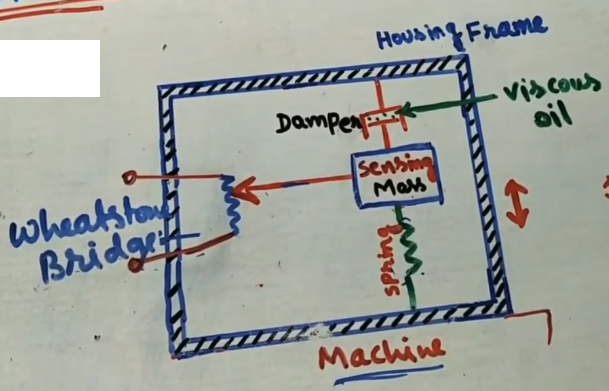 Housing Frame
Viscous
oil
Damper
Sensing
Mass
Wheatstone
Bridge
Spring
Machine